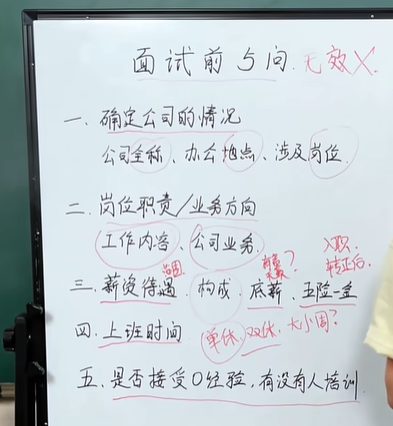 面试前5问. 无效X.
一、确定公司的情况
公司全称、办公地点、涉及岗位.
二.岗位职责/业务方向
工作内容、公司业务.
入职.
转正后.
范围
三.薪资待遇.构成.底薪.五险一金
四.上班时间 单休.双休.大小周?
五、是否接受0经验,有没有人培训.